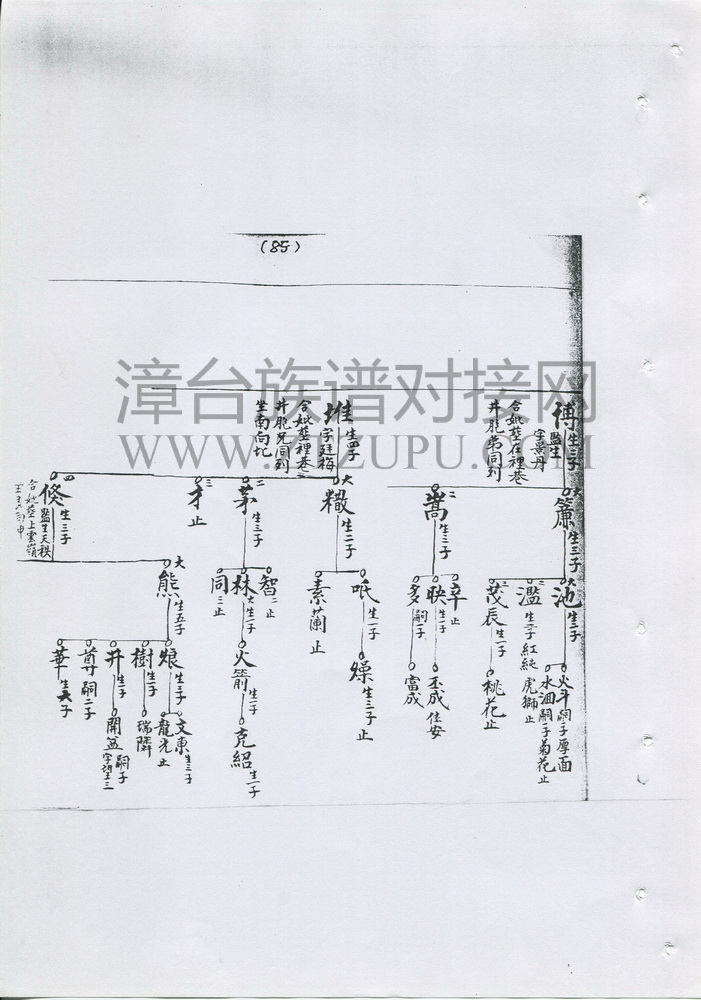 (85)
漳台族谱对接网
WWW.ZZZUPU.COM
博 生三子
監生
字景丹
合妣塟在裡巷
井肶弟同列
大 簾 生三子
大 池 生三子
火斗 嗣子厚面
水油 嗣子菊花 止
二 濫 生三子 紅純 虎獅 止
三 茂辰 生一子
桃花 止
二 嵩 生三子
辛 止
映 生二子
丕成 佳安
多 嗣子
富成
堆 生四子
字廷梅
合妣塟裡巷
井肶兄同列
坐南向北
大 糤 生二子
吼 生一子
燥 生三子 止
素蘭 止
二 茅 生三子
智 二 止
林 大 生一子
火箭 生一子
克紹 生一子
同 三 止
三 才 止
四 倐 生三子
監生天秩
合妣塟上雲嶺
大 熊 生五子
烺 生三子
文東 生三子
龍光 止
樹 生一子
瑞隣
井 生一子
開盆 嗣子
尊 嗣二子
華